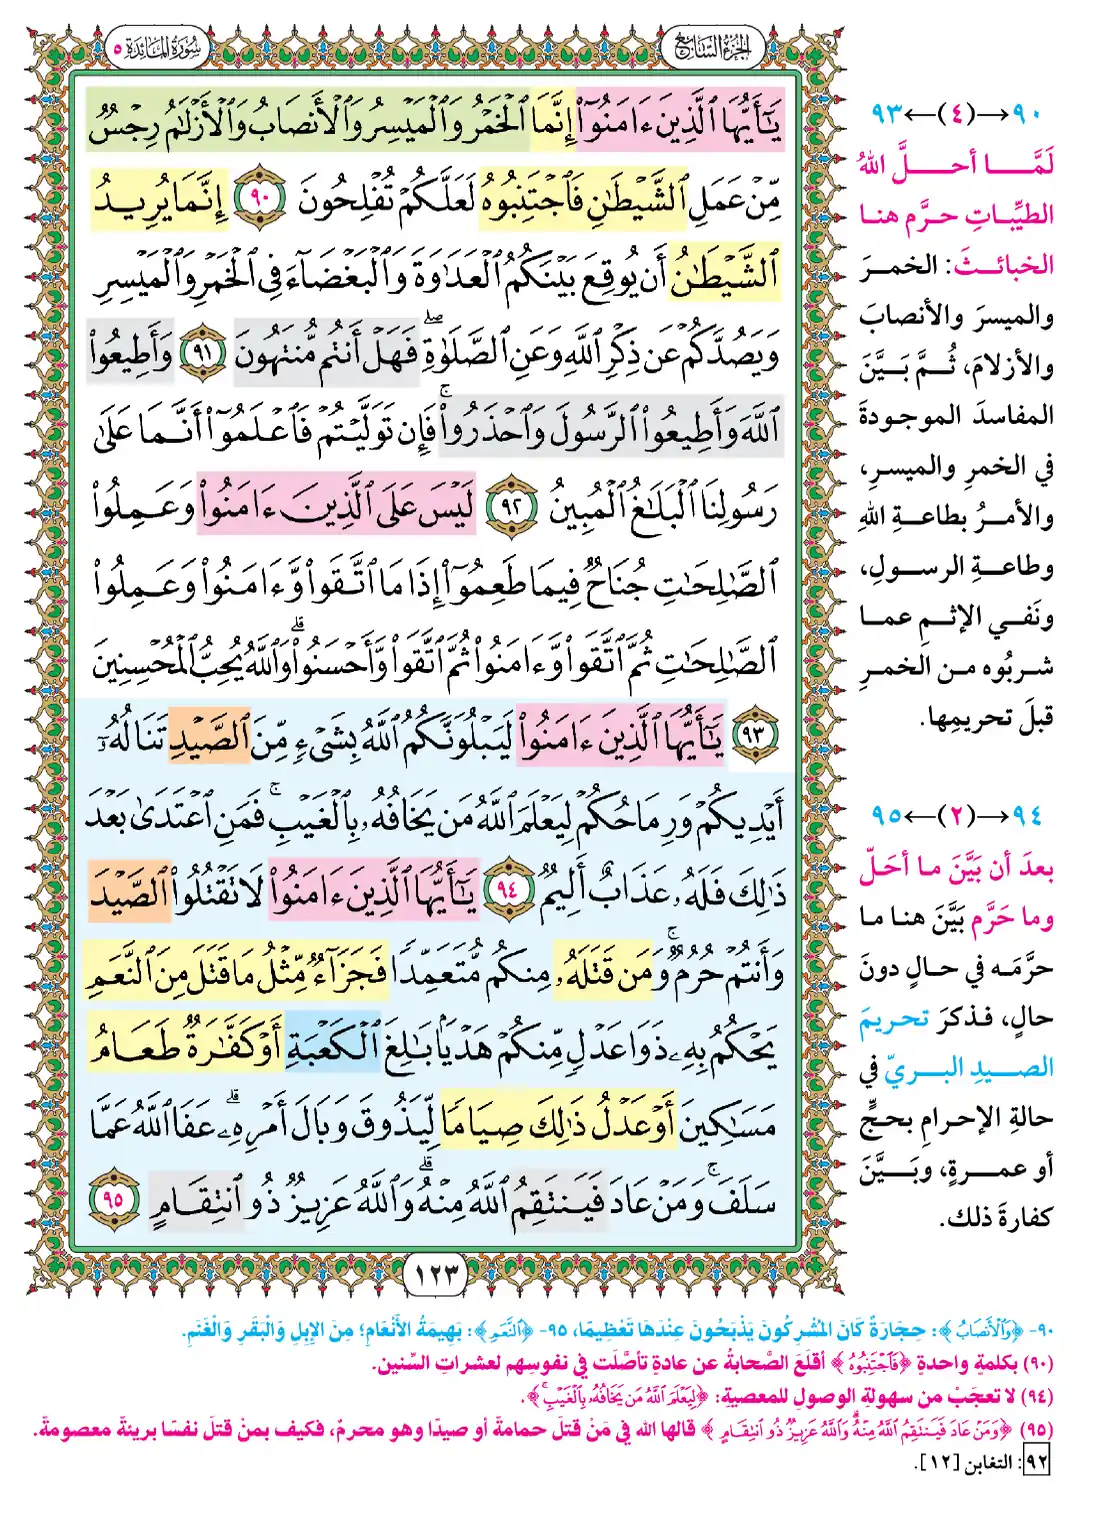 الجزء السابع
سورة المائدة ٥
يَٰٓأَيُّهَا ٱلَّذِينَ ءَامَنُوٓا۟ إِنَّمَا ٱلْخَمْرُ وَٱلْمَيْسِرُ وَٱلْأَنصَابُ وَٱلْأَزْلَٰمُ رِجْسٌ
مِّنْ عَمَلِ ٱلشَّيْطَٰنِ فَٱجْتَنِبُوهُ لَعَلَّكُمْ تُفْلِحُونَ ٩٠ إِنَّمَا يُرِيدُ
ٱلشَّيْطَٰنُ أَن يُوقِعَ بَيْنَكُمُ ٱلْعَدَٰوَةَ وَٱلْبَغْضَآءَ فِى ٱلْخَمْرِ وَٱلْمَيْسِرِ
وَيَصُدَّكُمْ عَن ذِكْرِ ٱللَّهِ وَعَنِ ٱلصَّلَوٰةِ ۖ فَهَلْ أَنتُم مُّنتَهُونَ ٩١ وَأَطِيعُوا۟
ٱللَّهَ وَأَطِيعُوا۟ ٱلرَّسُولَ وَٱحْذَرُوا۟ ۚ فَإِن تَوَلَّيْتُمْ فَٱعْلَمُوٓا۟ أَنَّمَا عَلَىٰ
رَسُولِنَا ٱلْبَلَٰغُ ٱلْمُبِينُ ٩٢ لَيْسَ عَلَى ٱلَّذِينَ ءَامَنُوا۟ وَعَمِلُوا۟
ٱلصَّٰلِحَٰتِ جُنَاحٌ فِيمَا طَعِمُوٓا۟ إِذَا مَا ٱتَّقَوا۟ وَّءَامَنُوا۟ وَعَمِلُوا۟
ٱلصَّٰلِحَٰتِ ثُمَّ ٱتَّقَوا۟ وَّءَامَنُوا۟ ثُمَّ ٱتَّقَوا۟ وَّأَحْسَنُوا۟ ۗ وَٱللَّهُ يُحِبُّ ٱلْمُحْسِنِينَ
٩٣ يَٰٓأَيُّهَا ٱلَّذِينَ ءَامَنُوا۟ لَيَبْلُوَنَّكُمُ ٱللَّهُ بِشَىْءٍ مِّنَ ٱلصَّيْدِ تَنَالُهُۥٓ
أَيْدِيكُمْ وَرِمَاحُكُمْ لِيَعْلَمَ ٱللَّهُ مَن يَخَافُهُۥ بِٱلْغَيْبِ ۚ فَمَنِ ٱعْتَدَىٰ بَعْدَ
ذَٰلِكَ فَلَهُۥ عَذَابٌ أَلِيمٌ ٩٤ يَٰٓأَيُّهَا ٱلَّذِينَ ءَامَنُوا۟ لَا تَقْتُلُوا۟ ٱلصَّيْدَ
وَأَنتُمْ حُرُمٌ ۚ وَمَن قَتَلَهُۥ مِنكُم مُّتَعَمِّدًا فَجَزَآءٌ مِّثْلُ مَا قَتَلَ مِنَ ٱلنَّعَمِ
يَحْكُمُ بِهِۦ ذَوَا عَدْلٍ مِّنكُمْ هَدْيًۢا بَٰلِغَ ٱلْكَعْبَةِ أَوْ كَفَّٰرَةٌ طَعَامُ
مَسَٰكِينَ أَوْ عَدْلُ ذَٰلِكَ صِيَامًا لِّيَذُوقَ وَبَالَ أَمْرِهِۦ ۗ عَفَا ٱللَّهُ عَمَّا
سَلَفَ ۚ وَمَنْ عَادَ فَيَنتَقِمُ ٱللَّهُ مِنْهُ ۗ وَٱللَّهُ عَزِيزٌ ذُو ٱنتِقَامٍ ٩٥
١٢٣
٩٠→(٤)←٩٣
لَمَّا أحلَّ اللهُ
الطيِّباتِ حرَّم هنا
الخبائثَ: الخمرَ
والميسرَ والأنصابَ
والأزلامَ، ثُمَّ بَيَّنَ
المفاسدَ الموجودةَ
في الخمرِ والميسرِ،
والأمرُ بطاعةِ اللهِ
وطاعةِ الرسولِ،
ونَفي الإثمِ عما
شربُوه من الخمرِ
قبلَ تحريمِها.
٩٤→(٢)←٩٥
بعدَ أن بَيَّنَ ما أحَلّ
وما حَرَّم بَيَّنَ هنا ما
حرَّمَه في حالٍ دونَ
حالٍ، فذكرَ تحريمَ
الصيدِ البريّ في
حالةِ الإحرامِ بحجٍّ
أو عمرةٍ، وبَيَّنَ
كفارةَ ذلك.
٩٠- ﴿وَٱلْأَنصَابُ﴾: حِجَارَةٌ كَانَ المُشْرِكُونَ يَذْبَحُونَ عِنْدَهَا تَعْظِيمًا، ٩٥- ﴿ٱلنَّعَمِ﴾: بَهِيمَةُ الأَنْعَامِ؛ مِنَ الإِبِلِ وَالْبَقَرِ وَالْغَنَمِ.
(٩٠) بكلمةٍ واحدةٍ ﴿فَٱجْتَنِبُوهُ﴾ أقلَعَ الصَّحابةُ عن عادةٍ تأصَّلَت في نفوسِهم لعشراتِ السِّنين.
(٩٤) لا تعجَبْ من سهولةِ الوصولِ للمعصيةِ: ﴿لِيَعْلَمَ ٱللَّهُ مَن يَخَافُهُۥ بِٱلْغَيْبِ ۚ﴾.
(٩٥) ﴿وَمَنْ عَادَ فَيَنتَقِمُ ٱللَّهُ مِنْهُ ۗ وَٱللَّهُ عَزِيزٌ ذُو ٱنتِقَامٍ﴾ قالها الله في مَنْ قتلَ حمامةً أو صيدًا وهو محرمٌ، فكيف بمن قتلَ نفسًا بريئة معصومةً.
٩٢: التغابن [١٢].